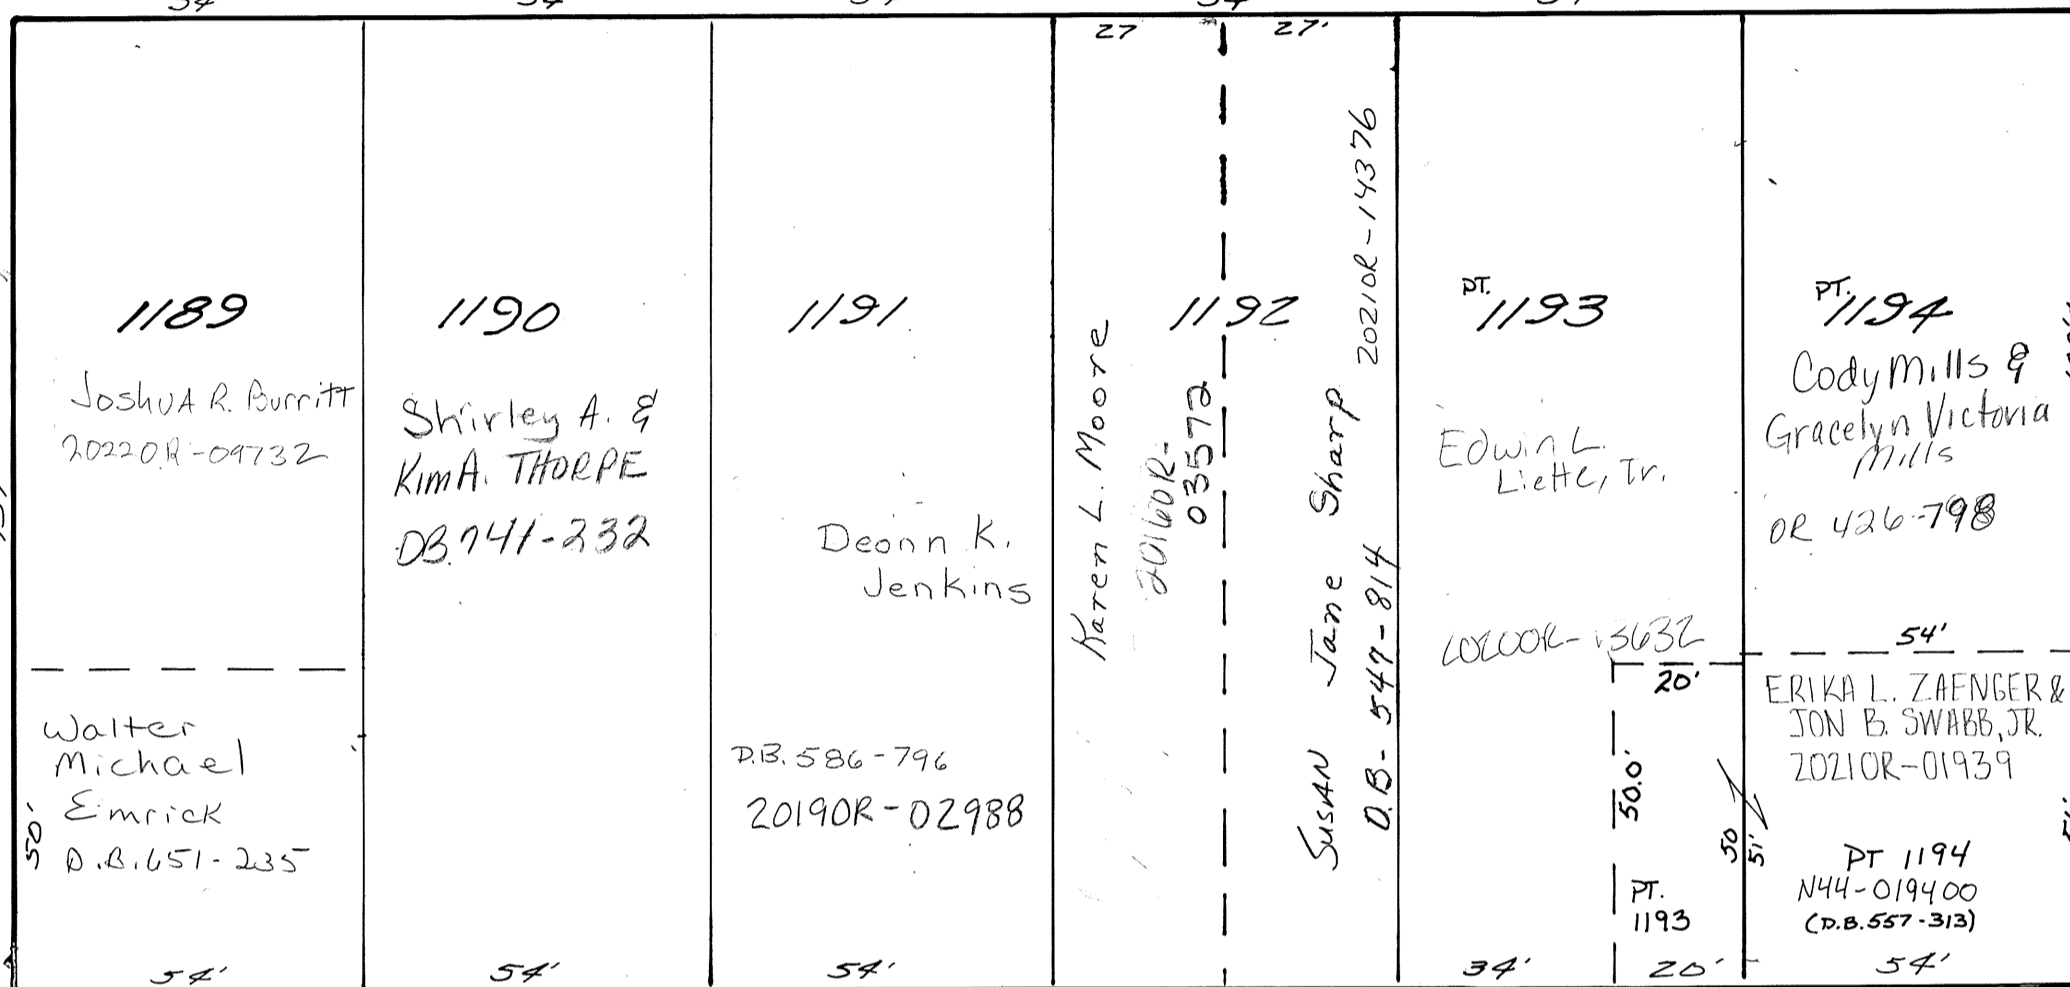 27
27'
1189
Joshua R. Burritt
2022OR-09732
Walter
Michael
Emrick
D.B. 651-235
50'
54'
1190
Shirley A. &
Kim A. THORPE
DB. 741-232
54'
1191
Deonn K.
Jenkins
D.B. 586-796
2019OR-02988
54'
1192
Karen L. Moore
2016OR-
03572
SUSAN Jane Sharp
2021OR-14376
D.B- 547-814
PT.
1193
Edwin L.
Liette, Tr.
2020OR-13632
20'
50.0'
PT.
1193
34'
20'
PT.
1194
Cody Mills &
Gracelyn Victoria
Mills
OR 426-798
54'
ERIKA L. ZAENGER &
JON B. SWABB, JR.
2021OR-01939
50
51'
PT 1194
N44-019400
(D.B. 557-313)
54'
51'